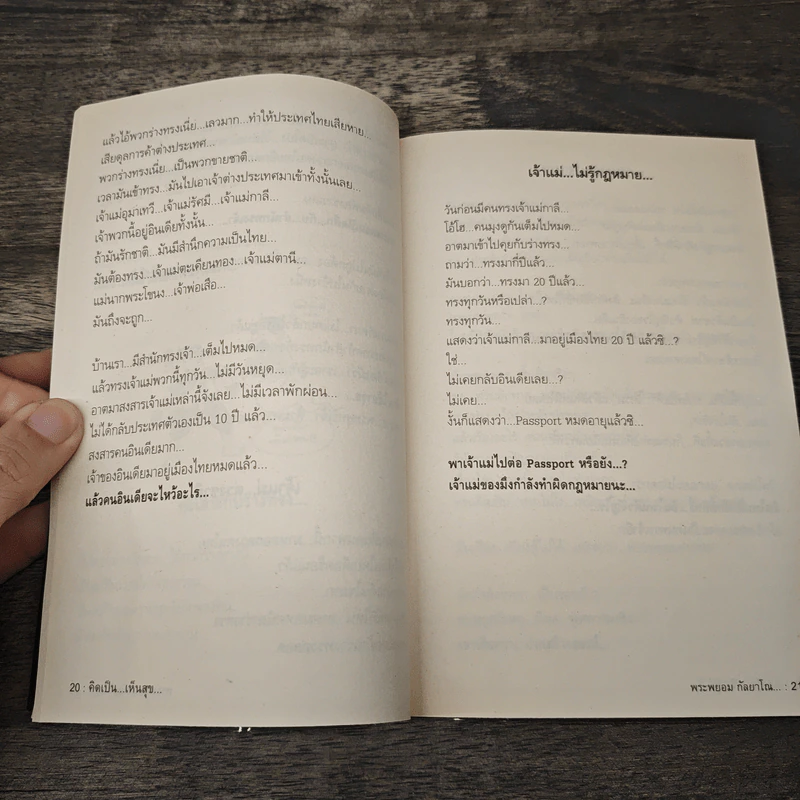 แล้วไอ้พวกร่างทรงเนี่ย...เลวมาก...ทำให้ประเทศไทยเสียหาย...
เสียดุลการค้าต่างประเทศ...
พวกร่างทรงเนี่ย...เป็นพวกขายชาติ...
เวลามันเข้าทรง...มันไปเอาเจ้าต่างประเทศมาเข้าทั้งนั้นเลย...
เจ้าแม่อุมาเทวี...เจ้าแม่รัศมี...เจ้าแม่กาลี...
เจ้าพวกนี้อยู่อินเดียทั้งนั้น...
ถ้ามันรักชาติ...มันมีสำนึกความเป็นไทย...
มันต้องทรง...เจ้าแม่ตะเคียนทอง...เจ้าแม่ตานี...
แม่นากพระโขนง...เจ้าพ่อเสือ...
มันถึงจะถูก...
บ้านเรา...มีสำนักทรงเจ้า...เต็มไปหมด...
แล้วทรงเจ้าแม่พวกนี้ทุกวัน...ไม่มีวันหยุด...
อาตมาสงสารเจ้าแม่เหล่านี้จังเลย...ไม่มีเวลาพักผ่อน...
ไม่ได้กลับประเทศตัวเองเป็น 10 ปี แล้ว...
สงสารคนอินเดียมาก...
เจ้าของอินเดียมาอยู่เมืองไทยหมดแล้ว...
แล้วคนอินเดียจะไหว้อะไร...
20 : คิดเป็น...เห็นสุข...
เจ้าแม่...ไม่รู้กฎหมาย...
วันก่อนมีคนทรงเจ้าแม่กาลี...
โอ้โฮ...คนมุงดูกันเต็มไปหมด...
อาตมาเข้าไปคุยกับร่างทรง...
ถามว่า...ทรงมากี่ปีแล้ว...
มันบอกว่า...ทรงมา 20 ปีแล้ว...
ทรงทุกวันหรือเปล่า...?
ทรงทุกวัน...
แสดงว่าเจ้าแม่กาลี...มาอยู่เมืองไทย 20 ปี แล้วซิ...?
ใช่...
ไม่เคยกลับอินเดียเลย...?
ไม่เคย...
งั้นก็แสดงว่า...Passport หมดอายุแล้วซิ...
พาเจ้าแม่ไปต่อ Passport หรือยัง...?
เจ้าแม่ของมึงกำลังทำผิดกฎหมายนะ...
พระพยอม กัลยาโณ... : 21